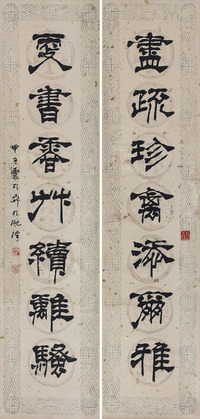 盡疏珍禽添爾雅
更書香艸續離騷